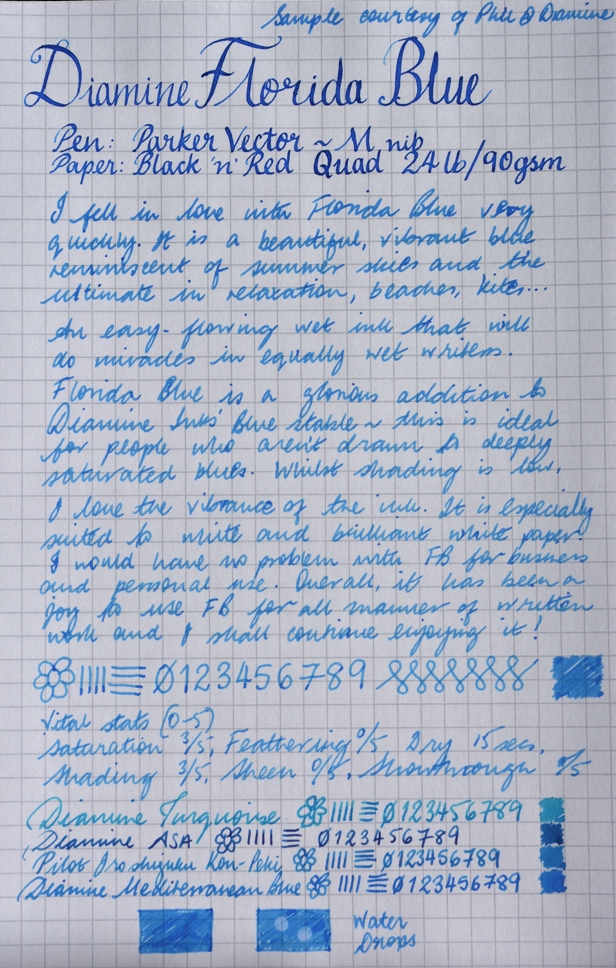 Sample courtesy of Phil @ Diamine
Diamine Florida Blue
Pen: Parker Vector ~ M nib
Paper: Black 'n' Red Quad 24lb/90gsm
I fell in love with Florida Blue very
quickly. It is a beautiful, vibrant blue
reminiscent of summer skies and the
ultimate in relaxation, beaches, kites...
An easy-flowing wet ink that will
do miracles in equally wet writers.
Florida Blue is a glorious addition to
Diamine Inks' Blue stable ~ this is ideal
for people who aren't drawn to deeply
saturated blues. Whilst shading is low,
I love the vibrance of the ink. It is especially
suited to white and brilliant white paper.
I would have no problem with FB for business
and personal use. Overall, it has been a
joy to use FB for all manner of written
work and I shall continue enjoying it!
Ø123456789
Vital stats (0-5)
Saturation 3/5, Feathering 0/5 Dry 15 secs,
Shading 3/5, Sheen 0/5, Showthrough /5
Diamine Turquoise Ø123456789
Diamine ASA Ø123456789
Pilot Iroshizuku Kon-Peki Ø123456789
Diamine Mediterranean Blue Ø123456789
Water
Drops